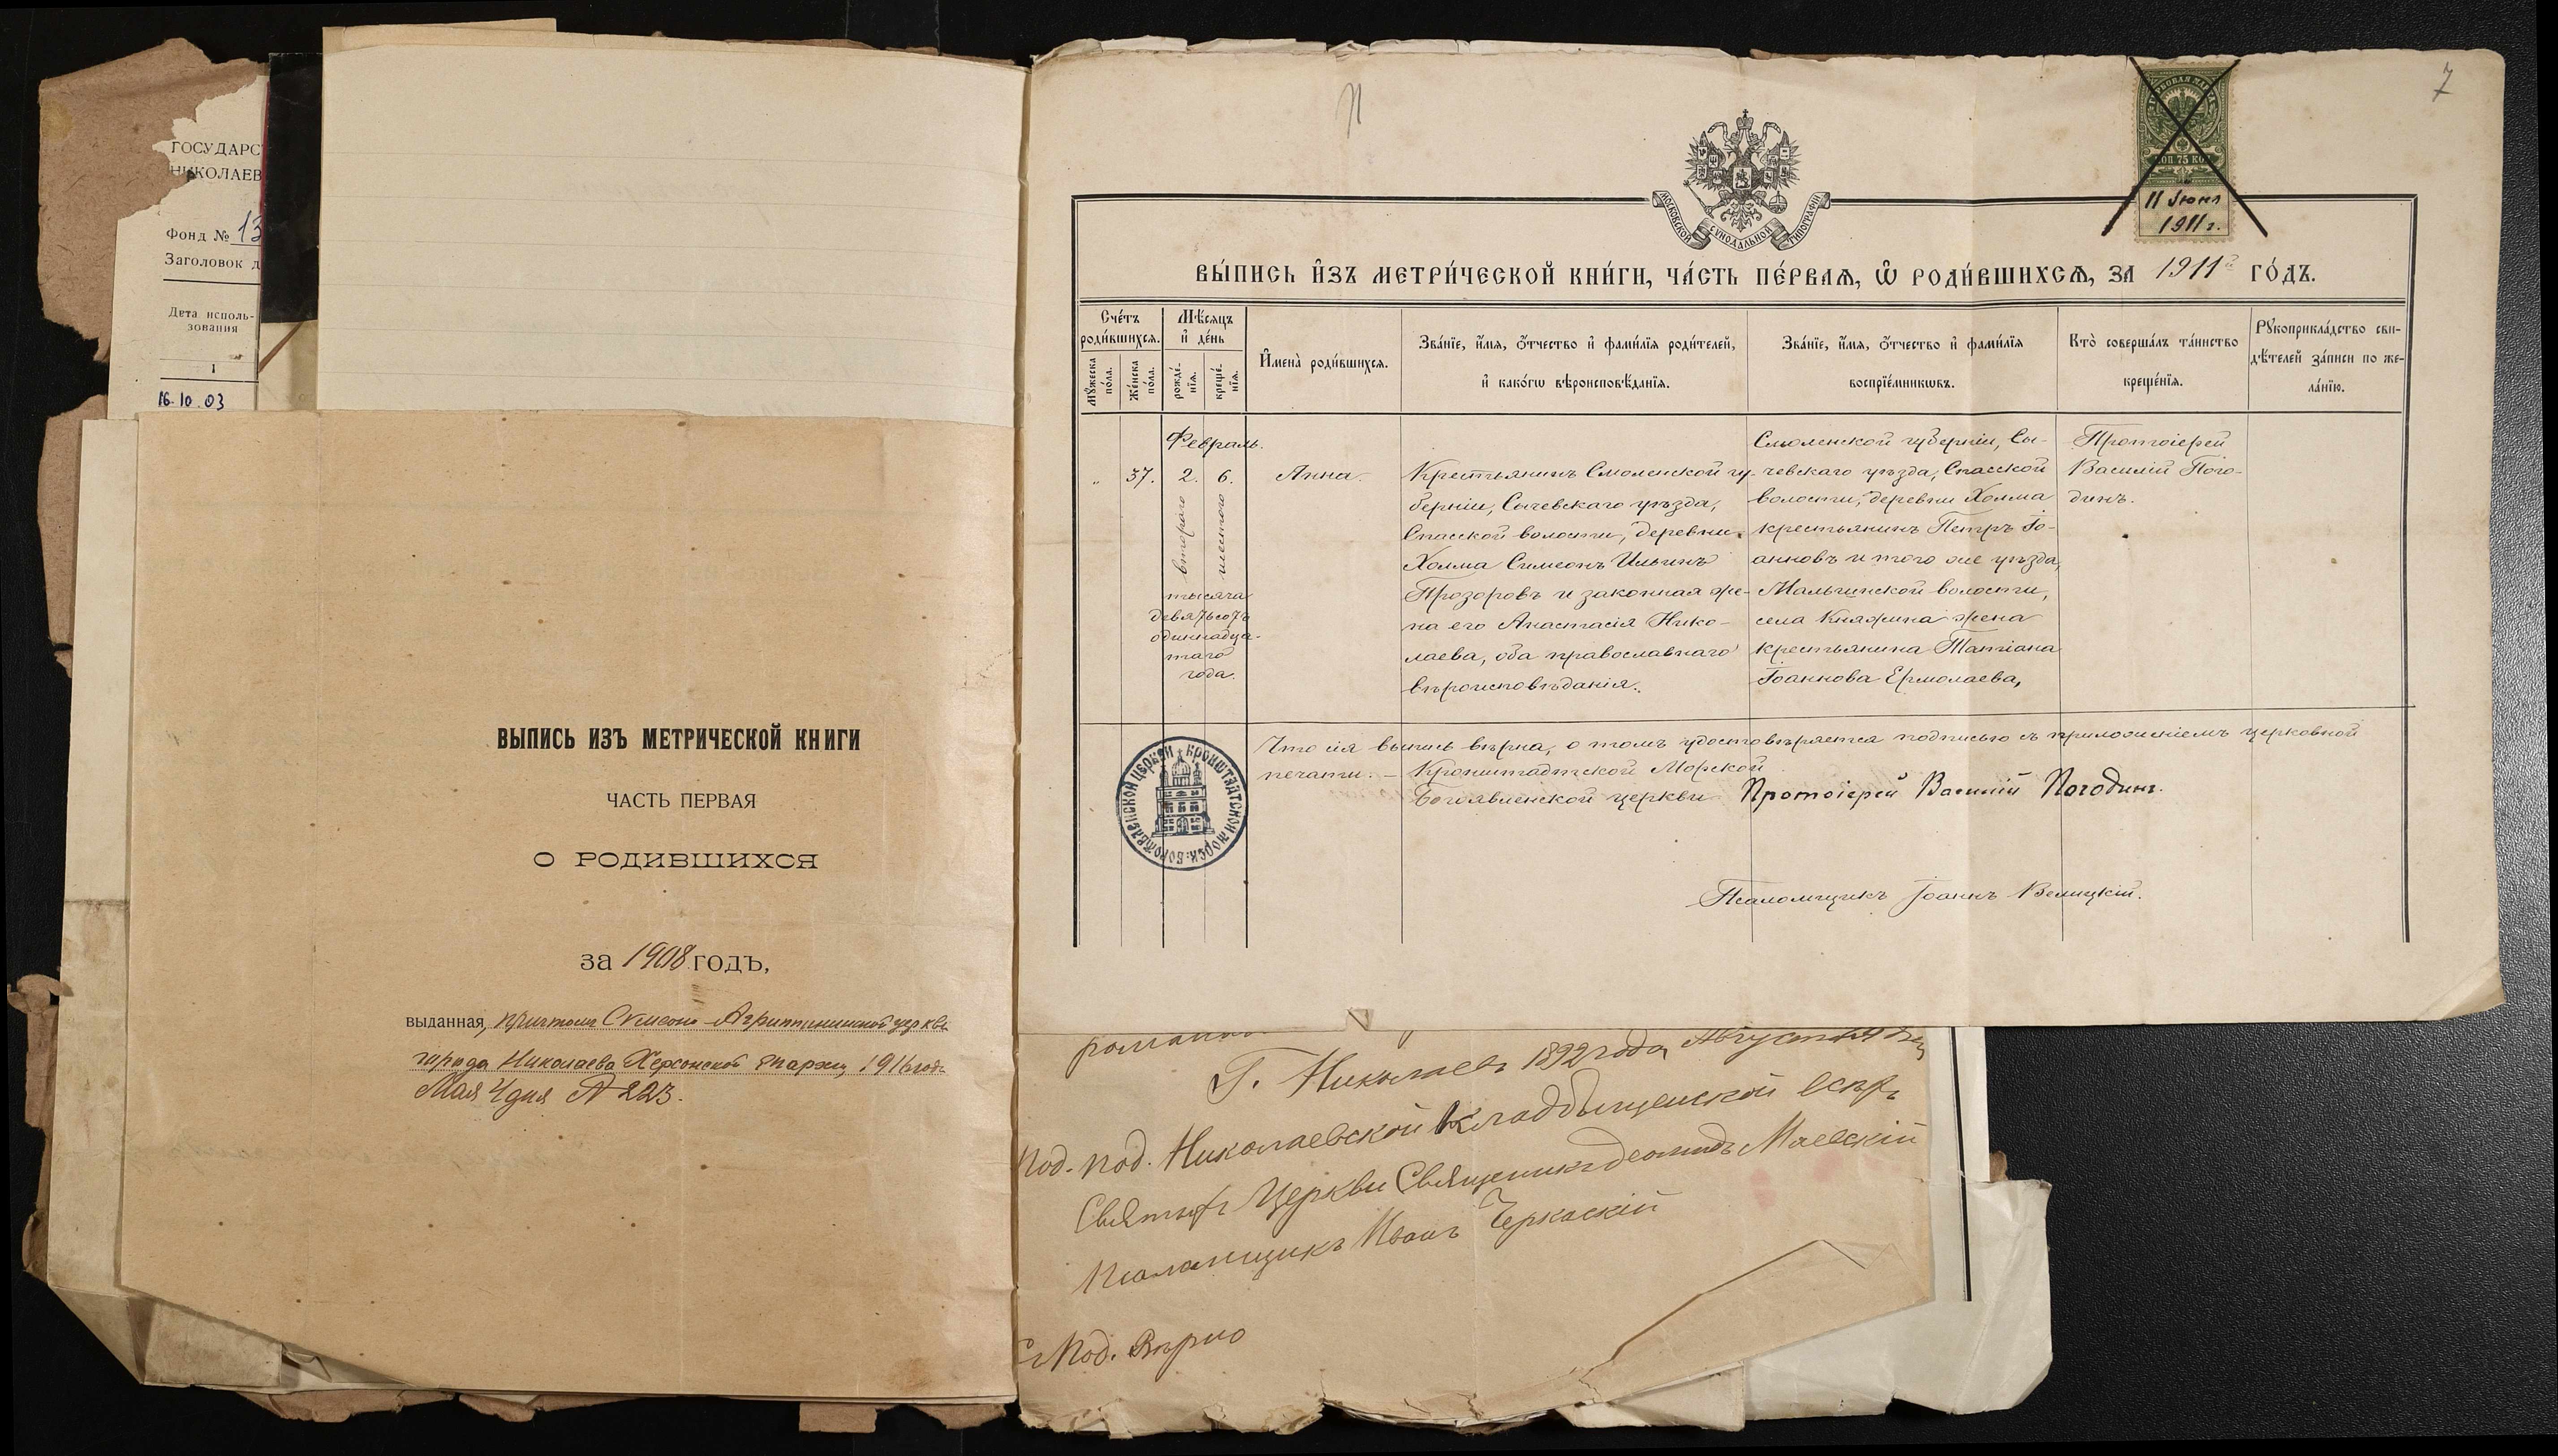 ГОСУДАРС
НИКОЛАЕВ
Фонд № 13
Заголовок д
Дата исполь-
зования
1
16.10.03
ВЫПИСЬ ИЗЪ МЕТРИЧЕСКОЙ КНИГИ
ЧАСТЬ ПЕРВАЯ
О РОДИВШИХСЯ
за 1908 годъ,
выданная, причтомъ Симеоно-Агриппининской церкви
города Николаева Херсонской епархіи, 1916 года
Мая 4 дня № 223.
7
МОСКОВСКОЙ СѴНОДАЛЬНОЙ ТИПОГРАФІИ
ГЕРБОВАЯ МАРКА
КОП. 75 КОП
11 Іюня
1911 г.
ВЫ́ПИСЬ И҆ЗЪ МЕТРИ́ЧЕСКОЙ КНИ́ГИ, ЧА́СТЬ ПЕ́РВАЯ, Ѡ҆ РОДИ́ВШИХСѦ, ЗА 1911 ГО́ДЪ.
Сче́тъ роди́вшихся.
Мꙋ́жеска по́ла.
Же́нска по́ла.
Мѣ́сяцъ и҆ де́нь
рожде́нїя.
креще́нїя.
И҆мена̀ роди́вшихся.
Зва́нїе, и҆́мя, ѻ҆́тчество и҆ фами́лїя роди́телей,
и҆ како́гѡ вѣроисповѣ́данїя.
Зва́нїе, и҆́мя, ѻ҆́тчество и҆ фами́лїя
воспрїе́мникѡвъ.
Кто̀ соверша́лъ та́инство
креще́нїя.
Рꙋкоприкла́дство сви-
дѣ́телей за́писи по же-
ла́нїю.
Февраль.
„ 37. 2. 6.
второго
шестого
тысяча
девятьсотъ
одиннадца-
таго
года.
Анна.
Крестьянинъ Смоленской гу-
берніи, Сычевскаго уѣзда,
Спасской волости, деревни
Холма Симеонъ Ильинъ
Прозоровъ и законная же-
на его Анастасія Нико-
лаева, оба православнаго
вѣроисповѣданія.
Смоленской губерніи, Сы-
чевскаго уѣзда, Спасской
волости, деревни Холма
крестьянинъ Петръ Іо-
анновъ и того же уѣзда,
Мальцинской волости,
села Княжина жена
крестьянина Татіана
Іоаннова Ермолаева,
Протоіерей
Василій Пого-
динъ.
Что сія выпись вѣрна, о томъ удостовѣряется подписью съ приложеніемъ церковной
печати. — Кронштадтской Морской
Богоявленской церкви Протоіерей Василій Погодинъ.
КРОНШТАТСКОЙ МОРСК: БОГОЯВЛЕНСКОЙ ЦЕРКВИ
Псаломщикъ Іоаннъ Велицкій.
Г. Николаевъ 1892 года, Августа
Под. под. Николаевской Кладбищенской всѣхъ
Святыхъ Церкви Священникъ Маевскій
Псаломщикъ Иванъ Черкаскій
Под. Вѣрно